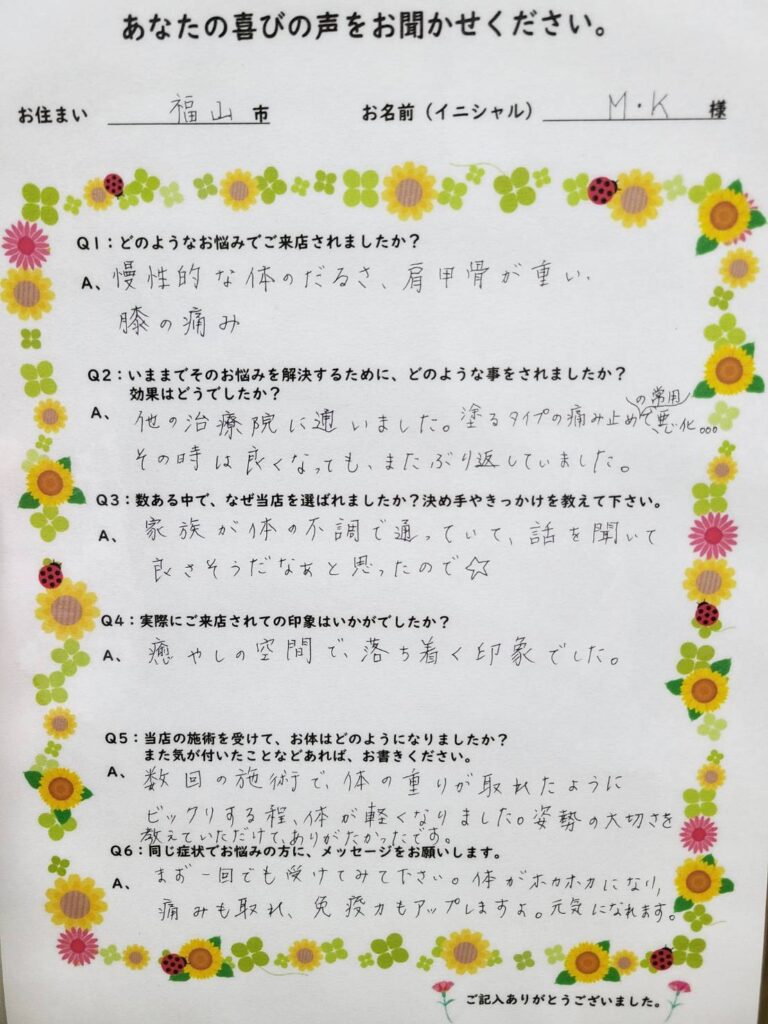 あなたの喜びの声をお聞かせください。
お住まい 福山 市 お名前（イニシャル） M・K 様
Q1：どのようなお悩みでご来店されましたか？
A、慢性的な体のだるさ、肩甲骨が重い、
膝の痛み
Q2：いままでそのお悩みを解決するために、どのような事をされましたか？
効果はどうでしたか？
の常用
A、他の治療院に通いました。塗るタイプの痛み止めで悪化…
その時は良くなっても、またぶり返していました。
Q3：数ある中で、なぜ当店を選ばれましたか？決め手やきっかけを教えて下さい。
A、家族が体の不調で通っていて、話を聞いて
良さそうだなぁと思ったので☆
Q4：実際にご来店されての印象はいかがでしたか？
A、癒やしの空間で、落ち着く印象でした。
Q5：当店の施術を受けて、お体はどのようになりましたか？
また気が付いたことなどあれば、お書きください。
A、数回の施術で、体の重りが取れたように
ビックリする程、体が軽くなりました。姿勢の大切さを
教えていただけて、ありがたかったです。
Q6：同じ症状でお悩みの方に、メッセージをお願いします。
A、まず一回でも受けてみて下さい。体がホカホカになり、
痛みも取れ、免疫力もアップしますよ。元気になれます。
ご記入ありがとうございました。